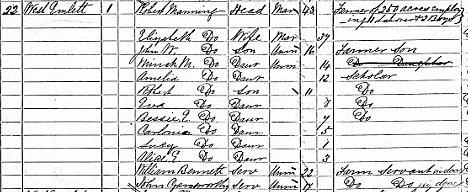 22 West Emlett 1 Robert Manning Head Mar 43 Farmer of 250 acres employ
ing 11 Labores & 2 Boys
Elizabeth Do Wife Mar 39
John W. Do Son Unm 16 Farmer Son
M. Do Daur Unm 14 Do Daughter
Amelia Do Daur 12 Scholar
Robt Do Son 11 Do
Eva Do Daur 8 Do
Bessie E. Do Daur 7 Do
Do Daur 5
Lucy Do Daur 1
Alice E. Do Daur 3
William Bennett Serv Unm 22 Farm Servant indoor
John Serv Unm Do Do indoor